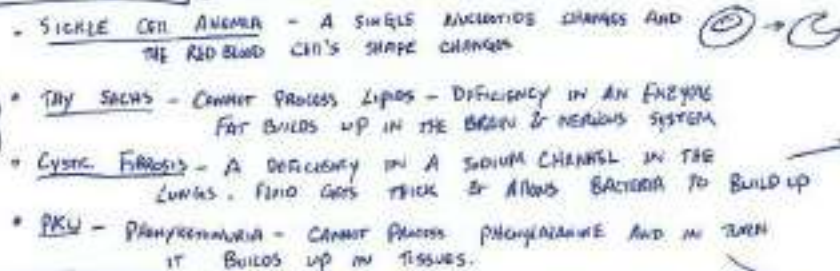 • SICKLE CELL ANEMIA - A SINGLE NUCLEOTIDE CHANGES AND
THE RED BLOOD CELL'S SHAPE CHANGES
• TAY SACHS - CANNOT PROCESS LIPIDS - DEFICIENCY IN AN ENZYME
FAT BUILDS UP IN THE BRAIN & NERVOUS SYSTEM
• CYSTIC FIBROSIS - A DEFICIENCY IN A SODIUM CHANNEL IN THE
LUNGS. FLUID GETS THICK & ALLOWS BACTERIA TO BUILD UP
• PKU - CANNOT PROCESS PHENYLALANINE AND IN TURN
IT BUILDS UP IN TISSUES.